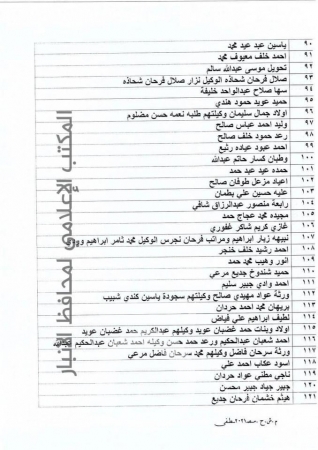 ٩٠ ياسين عبد عبد محمد
٩١ احمد خلف معيوف محمد
٩٢ تحويل موسى عبدالله سالم
٩٣ صلال فرحان شحاذه الوكيل نزار صلال فرحان شحاذه
٩٤ سها صلاح عبدالواحد خليفة
٩٥ حميد عويد حمود هندي
٩٦ اولاد جمال سليمان وكيلتهم طلبه نعمه حسن مضلوم
٩٧ وليد احمد عباس صالح
٩٨ رعد حمود خلف صالح
٩٩ احمد عبود عباده ربيع
١٠٠ وطبان كسار حاتم عبدالله
١٠١ حمده عبد عبد حمد
١٠٢ إعياد مزعل طوفان صالح
١٠٣ عليه حسين علي بطمان
١٠٤ رابعة منصور عبدالرزاق شافي
١٠٥ مجيده محمد عجاج حمد
١٠٦ غازي كريم شاكر غفوري
١٠٧ نبيهه زبار ابراهيم ومراتب فرحان نجرس الوكيل محمد ثامر ابراهيم
١٠٨ احمد رشيد خلف خنجر
١٠٩ انور وهيب محمد حمد
١١٠ حميد شندوخ جديع مرعي
١١١ احمد وادي جبير سليم
١١٢ ورثة عواد مهيدي صالح وكيلتهم سجودة ياسين كندي شبيب
١١٣ بريهان محمد احمد حردان
١١٤ لطيف ابراهيم علي فياض
١١٥ اولاد وبنات حمد غضبان عويد وكيلهم عبدالكريم حمد غضبان عويد
١١٦ احمد شعبان عبدالحكيم ورعد حمد حسن وكيله احمد شعبان عبدالحكيم
١١٧ ورثة سرحان فاضل وكيلهم محمد سرحان فاضل مرعي
١١٨ اسود عكاب احمد علي
١١٩ ناجي مطني عواد حردان
١٢٠ جبير جياد جبير محسن
١٢١ هيثم خشمان فرحان جديع
المكتب الإعلامي لمحافظ الانبار